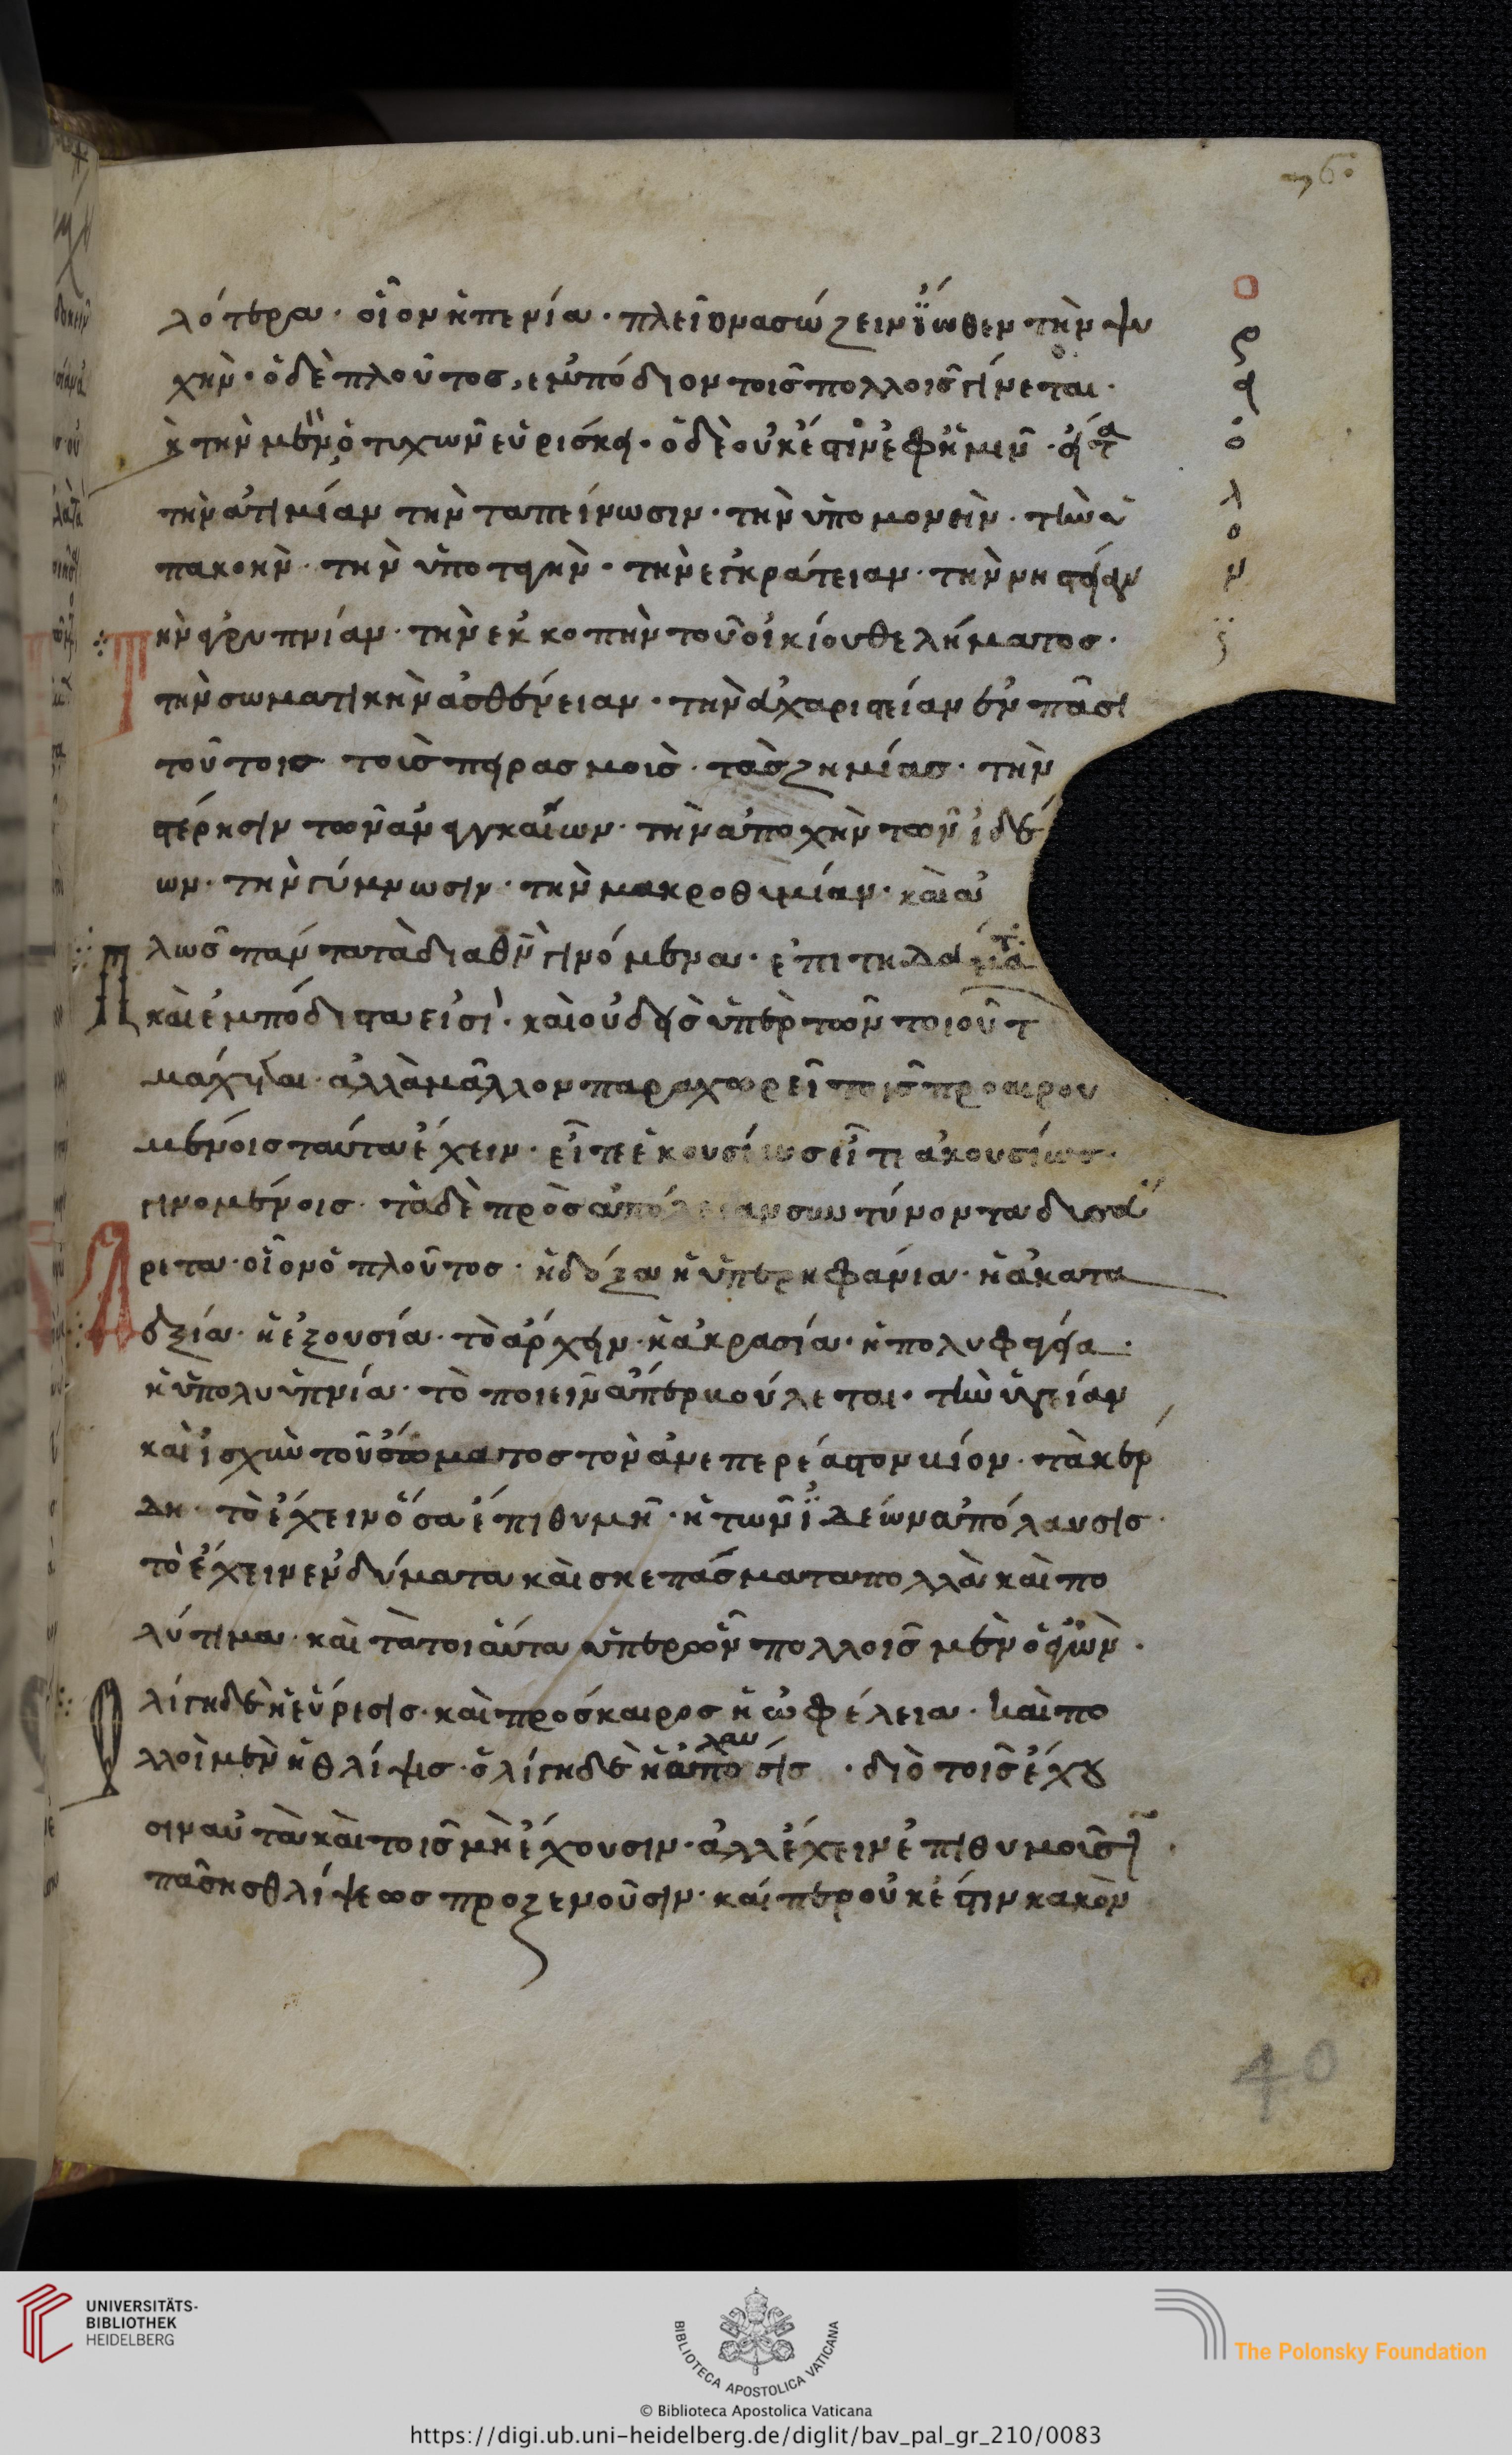 76
λότερα· οἷον ἡ πενία· πλεῖον ἀσώζειν εἴωθεν τὴν ψυ
χὴν· ὁ δὲ πλοῦτος, ἐμπόδιον τοῖς πολλοῖς γίνεται·
καὶ τὴν μὲν ὁ τυχὼν εὑρίσκει· ὁ δὲ οὐκ ἔστιν ἐφ ἡμῖν·
τὴν ἀτιμίαν τὴν ταπείνωσιν· τὴν ὑπομονεὶν· τὴν ὑ
πακοὴν· τὴν ὑποταγὴν· τὴν ἐγκράτειαν· τὴν νηστείαν
τὴν ἀγρυπνίαν· τὴν ἐκκοπὴν τοῦ οἰκίου θελήματος·
τὴν σωματικὴν ἀσθένειαν· τὴν εὐχαριστείαν ἐν πᾶσι
τοῦτοις τοῖς πειρασμοῖς· τὰς ζημίας· τὴν
στέρησιν τῶν ἀναγκαίων· τὴν ἀποχὴν τῶν ἰδέ
ων· τὴν γύμνωσιν· τὴν μακροθυμίαν· καὶ ἁ
λῶς πάντα τὰ διὰ θν γινόμενα·
ἀνεμπόδιστα εἰσὶ· καὶ οὐδεὶς ὑπὲρ τῶν τοιούτ
μάχεται· ἀλλὰ μᾶλλον παραχωρεῖ τοῖς προαιρου
μένοις ταῦτα ἔχειν· εἴτε ἑκουσίως εἴτι ἀκουσίως
γινομένοις· τὰ δὲ πρὸς ἀπόλειαν συντύνοντα δυσεύ
ρετα· οἷον ὁ πλοῦτος· ἡ δόξα ἡ ὑπερηφάνια· ἡ ἀκατα
δξία· ἡ ἐξουσία· τὸ ἀρχήν· ἡ ἀκρασία· ἡ πολυφαγεία·
ἡ ὑπολυυπνία· τὸ ποιεῖν ἅπερ βούλεται· τὴν ὑγείαν
καὶ ἰσχὺν τοῦ σώματος τὸν ἀνεπερέαστον βίον· τὰ κέρ
δη· τὸ ἔχειν ὅσα ἐπιθυμῆ· ἡ τῶν ἰδείων ἀπόλαυσις·
τὸ ἔχειν ἐνδύματα καὶ σκεπάσματα πολλὰ καὶ πο
λύτιμα· καὶ τὰ τοιαῦτα ὑπὲρ ὧν πολλοῖς μὲν ὁ ἀγὼν·
ὀλίγη δὲ ἡ εὕρεσις· καὶ πρόσκαιρος ἡ ὠφέλεια· καὶ πο
λλοὶ μὲν ἡ θλίψις· ὀλίγη δὲ ἡ ἀπόλαυσις· διὸ τοῖς ἔχου
σιν αὐτὰ καὶ τοῖς μὴ ἔχουσιν· ἀλλ ἔχειν ἐπιθυμοῦσιν·
πάσης θλίψεως προξενοῦσιν· καίπερ οὐκ ἔστιν κακὸν
40
UNIVERSITÄTS-
BIBLIOTHEK
HEIDELBERG
BIBLIOTECA APOSTOLICA VATICANA
The Polonsky Foundation
© Biblioteca Apostolica Vaticana
https://digi.ub.uni-heidelberg.de/diglit/bav_pal_gr_210/0083